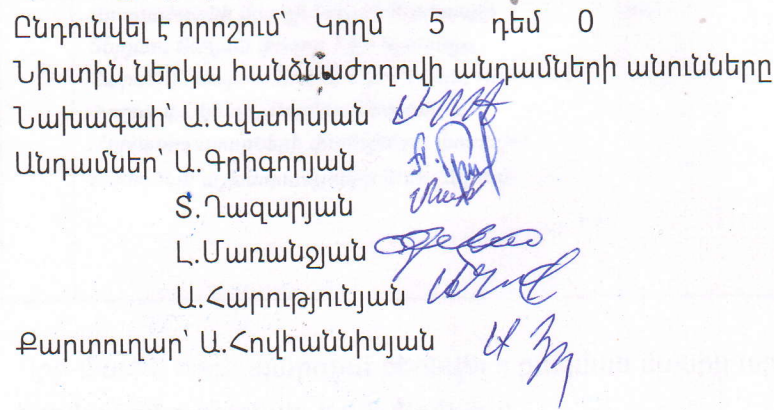 Ընդունվել է որոշում՝ Կողմ 5 դեմ 0
Նիստին ներկա հանձնաժողովի անդամների անունները
Նախագահ՝ Ա.Ավետիսյան
Անդամներ՝ Ա.Գրիգորյան
Տ.Ղազարյան
Լ.Մառանջյան
Ա.Հարությունյան
Քարտուղար՝ Ա.Հովհաննիսյան